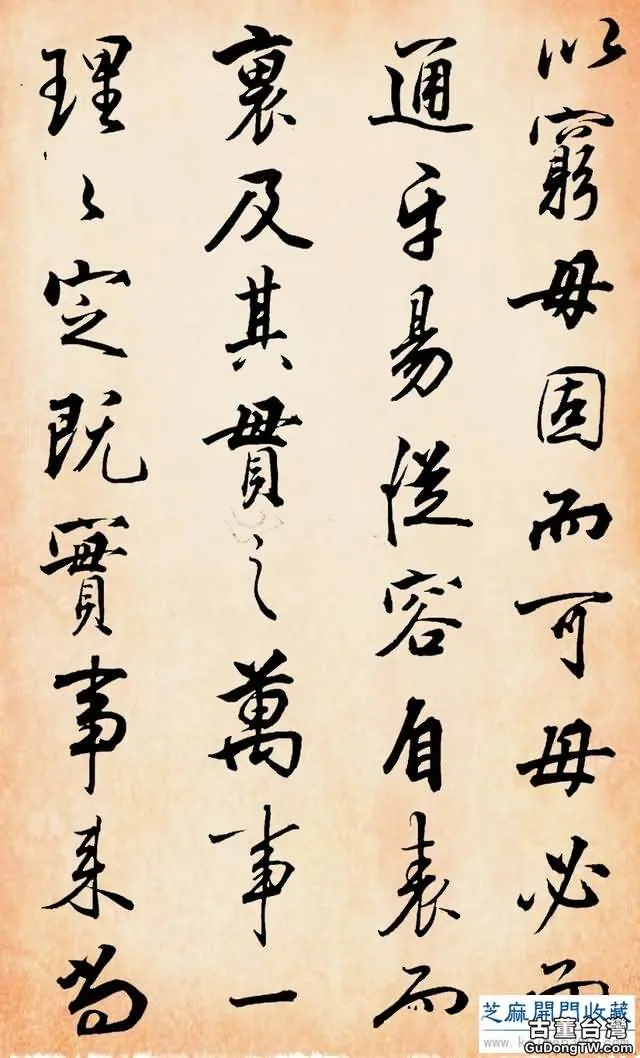 以窮毋固而可毋必而
通平易從容自表而
裏及其貫之萬事一
理〻定既實事來尚
芝麻開門收藏
古董台灣
GuDongTW.com